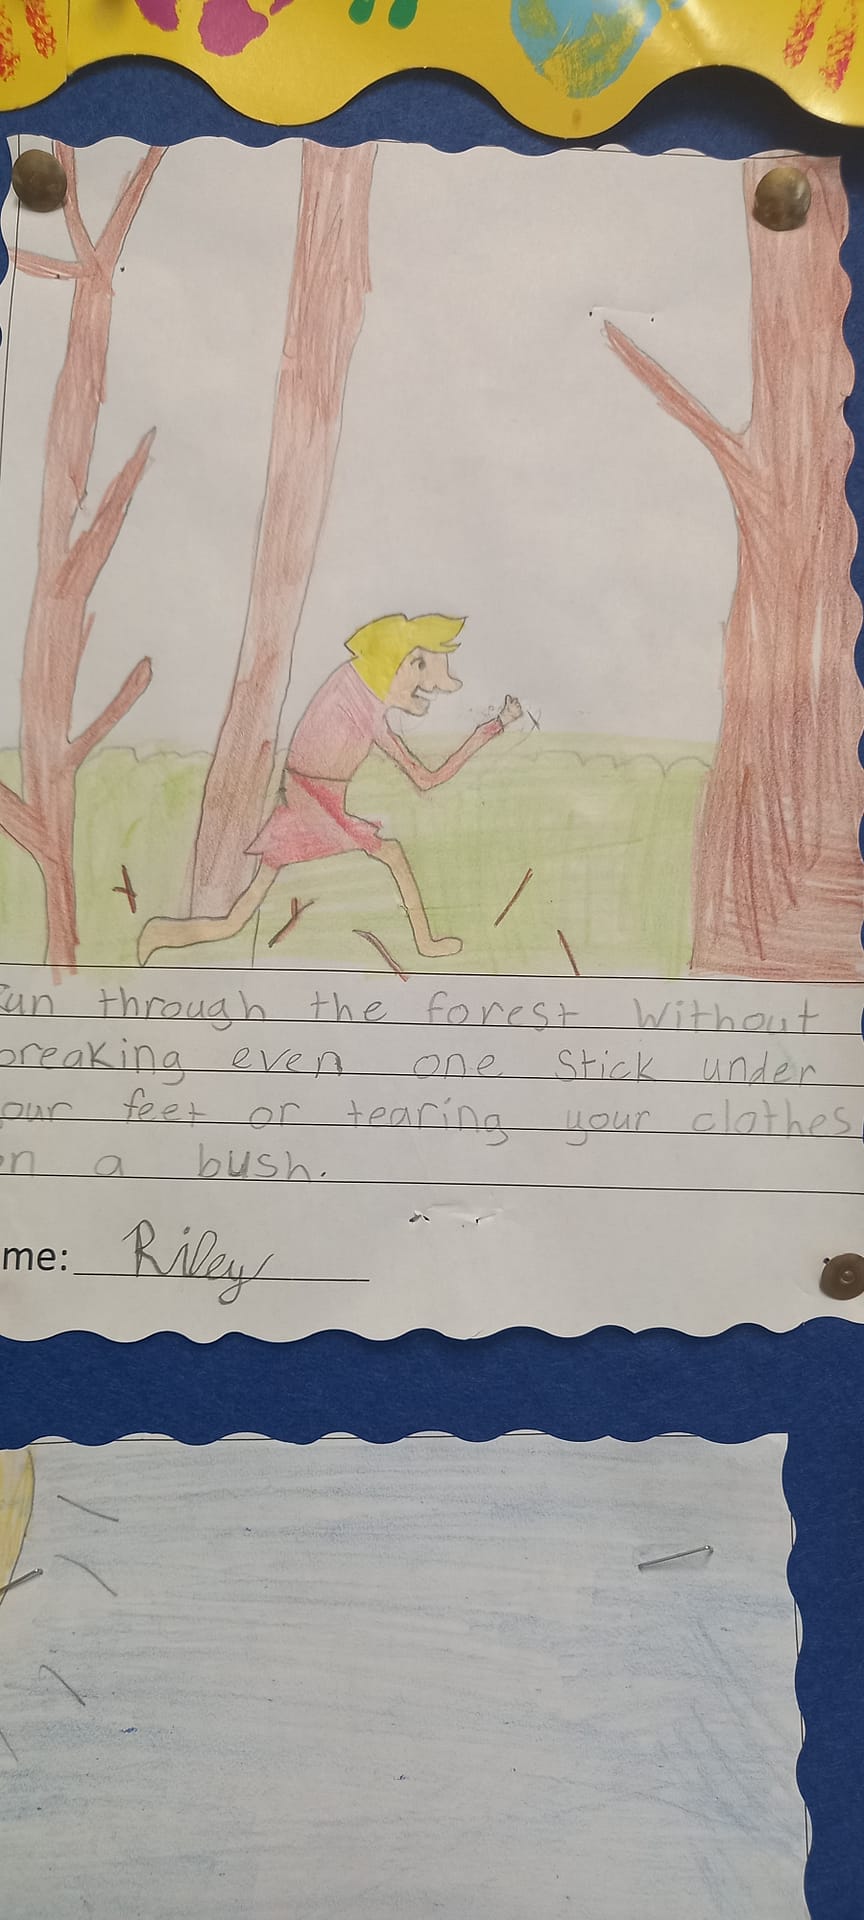 un through the forest without
reaking even one stick under
our feet or tearing your clothes
n a bush.
me: Riley